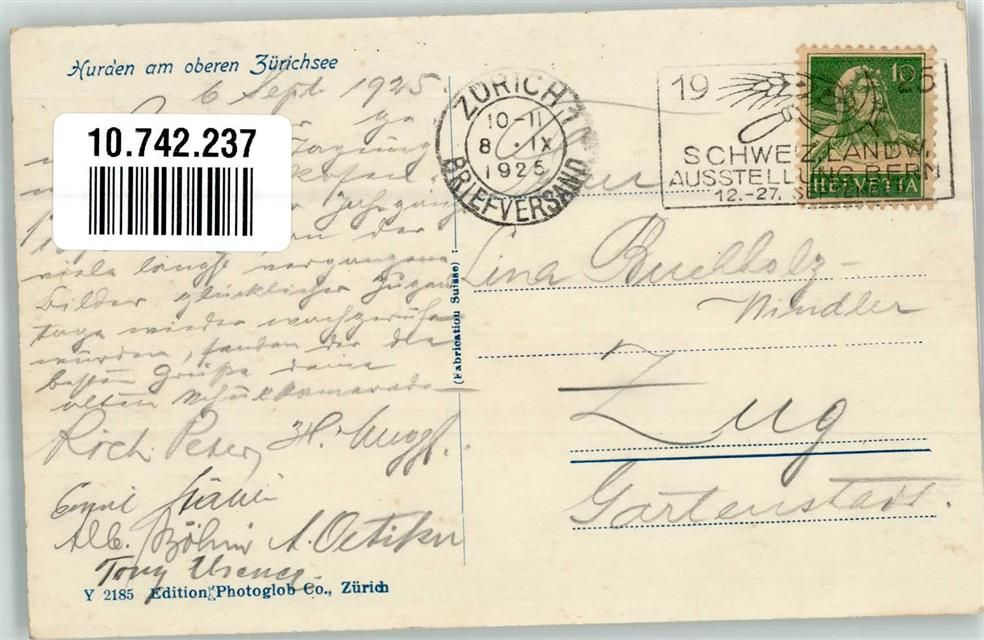 Hurden am oberen Zürichsee
6 Sept. 1925.
10.742.237
Tagung
Jahrgang
der
viele längst vergangene
bilder glücklicher Jugend
tage wieder wachgerufen
wurden, senden dir die
besten Grüße deine
alten Schulkamerade
Rich. Peter, H.
Emil
Alb. Böhni A. Oetiker
Tony
Y 2185 Edition Photoglob Co., Zürich
(Fabrication Suisse)
ZÜRICH 1
10-11
8 . IX
1925
BRIEFVERSAND
19 25
SCHWEIZ. LANDW.
AUSSTELLUNG BERN
12.-27. S
10
HELVETIA
Lina Buchholz-
Windler
Zug
Gartenstadt.